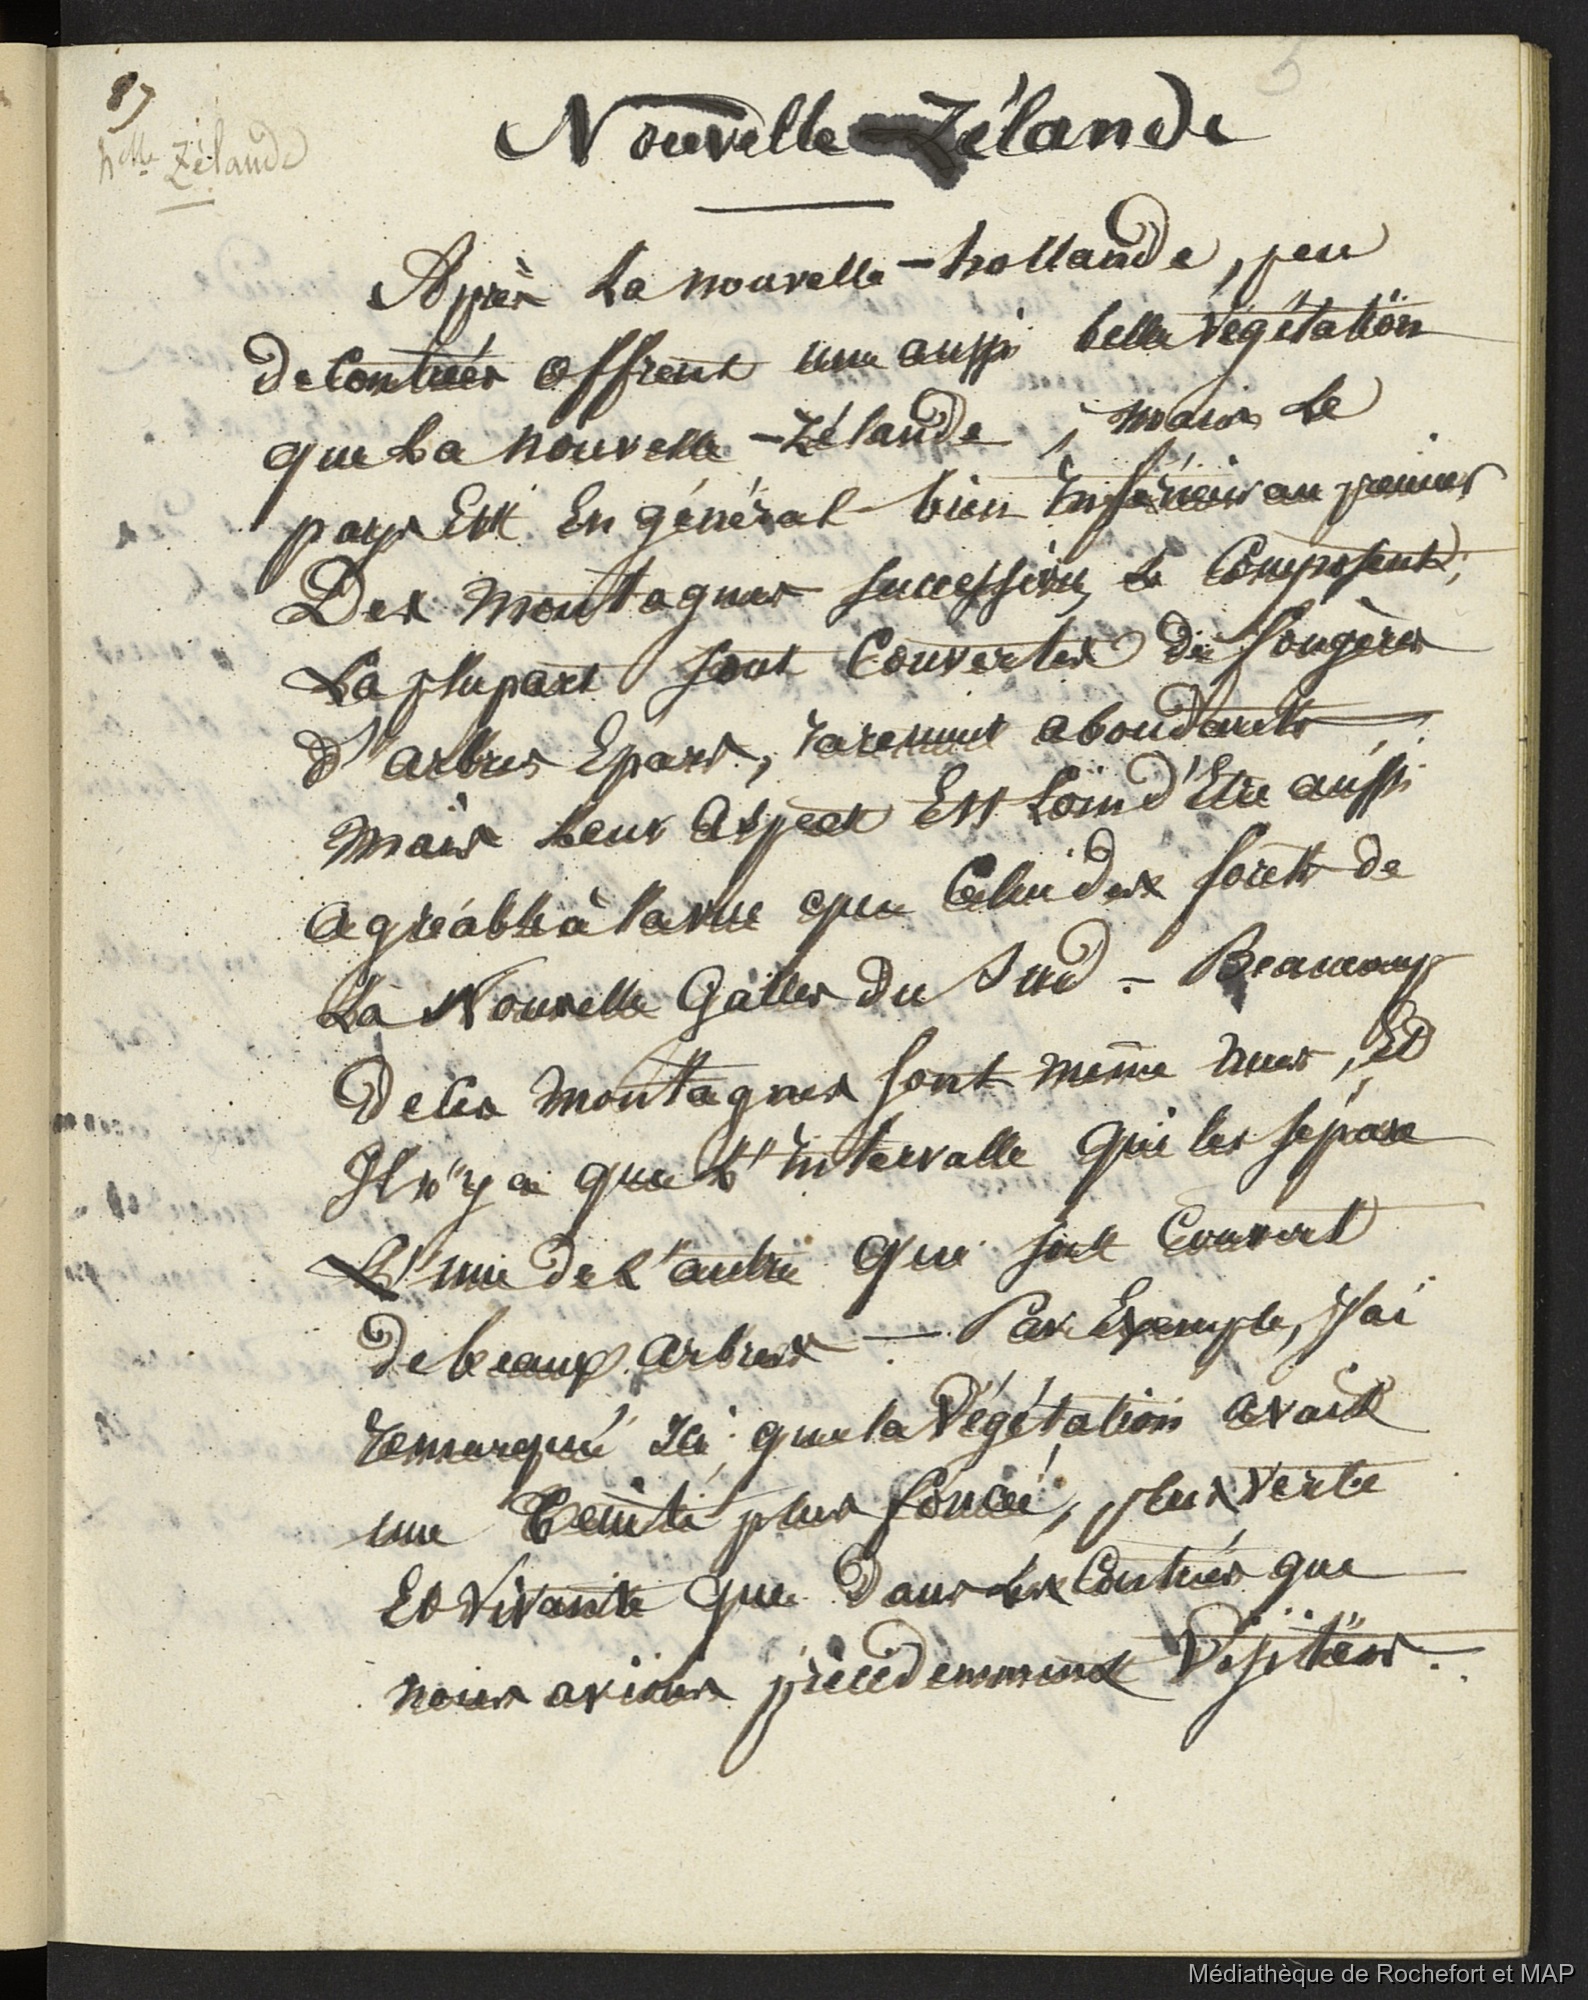 5
87
Nlle Zélande
Nouvelle-Zélande
Après La nouvelle-hollande, peu
de Contrées offrent une aussi belle Végétation
que La nouvelle-Zélande, mais Le
pays Est En général bien Inférieur au premier
Des montagnes successives Le Composent;
La plupart sont Couvertes de fougères
d'arbres Epars, rarement abondants
mais Leur Aspect Est Loin d'Etre aussi
agréable à la vue que Celui des forêts de
La Nouvelle Galles du Sud - Beaucoup
De Ces montagnes sont même nues, Et
Il n'y a que L'Intervalle qui les sépare
L'une de L'autre qui soit Couvert
de beaux arbres - Par Exemple, J'ai
remarqué Ici, que la Végétation avait
une teinte plus foncée, plus verte
Et Vivante que dans Les Contrées que
nous avions précédemment Visitées.
Médiathèque de Rochefort et MAP